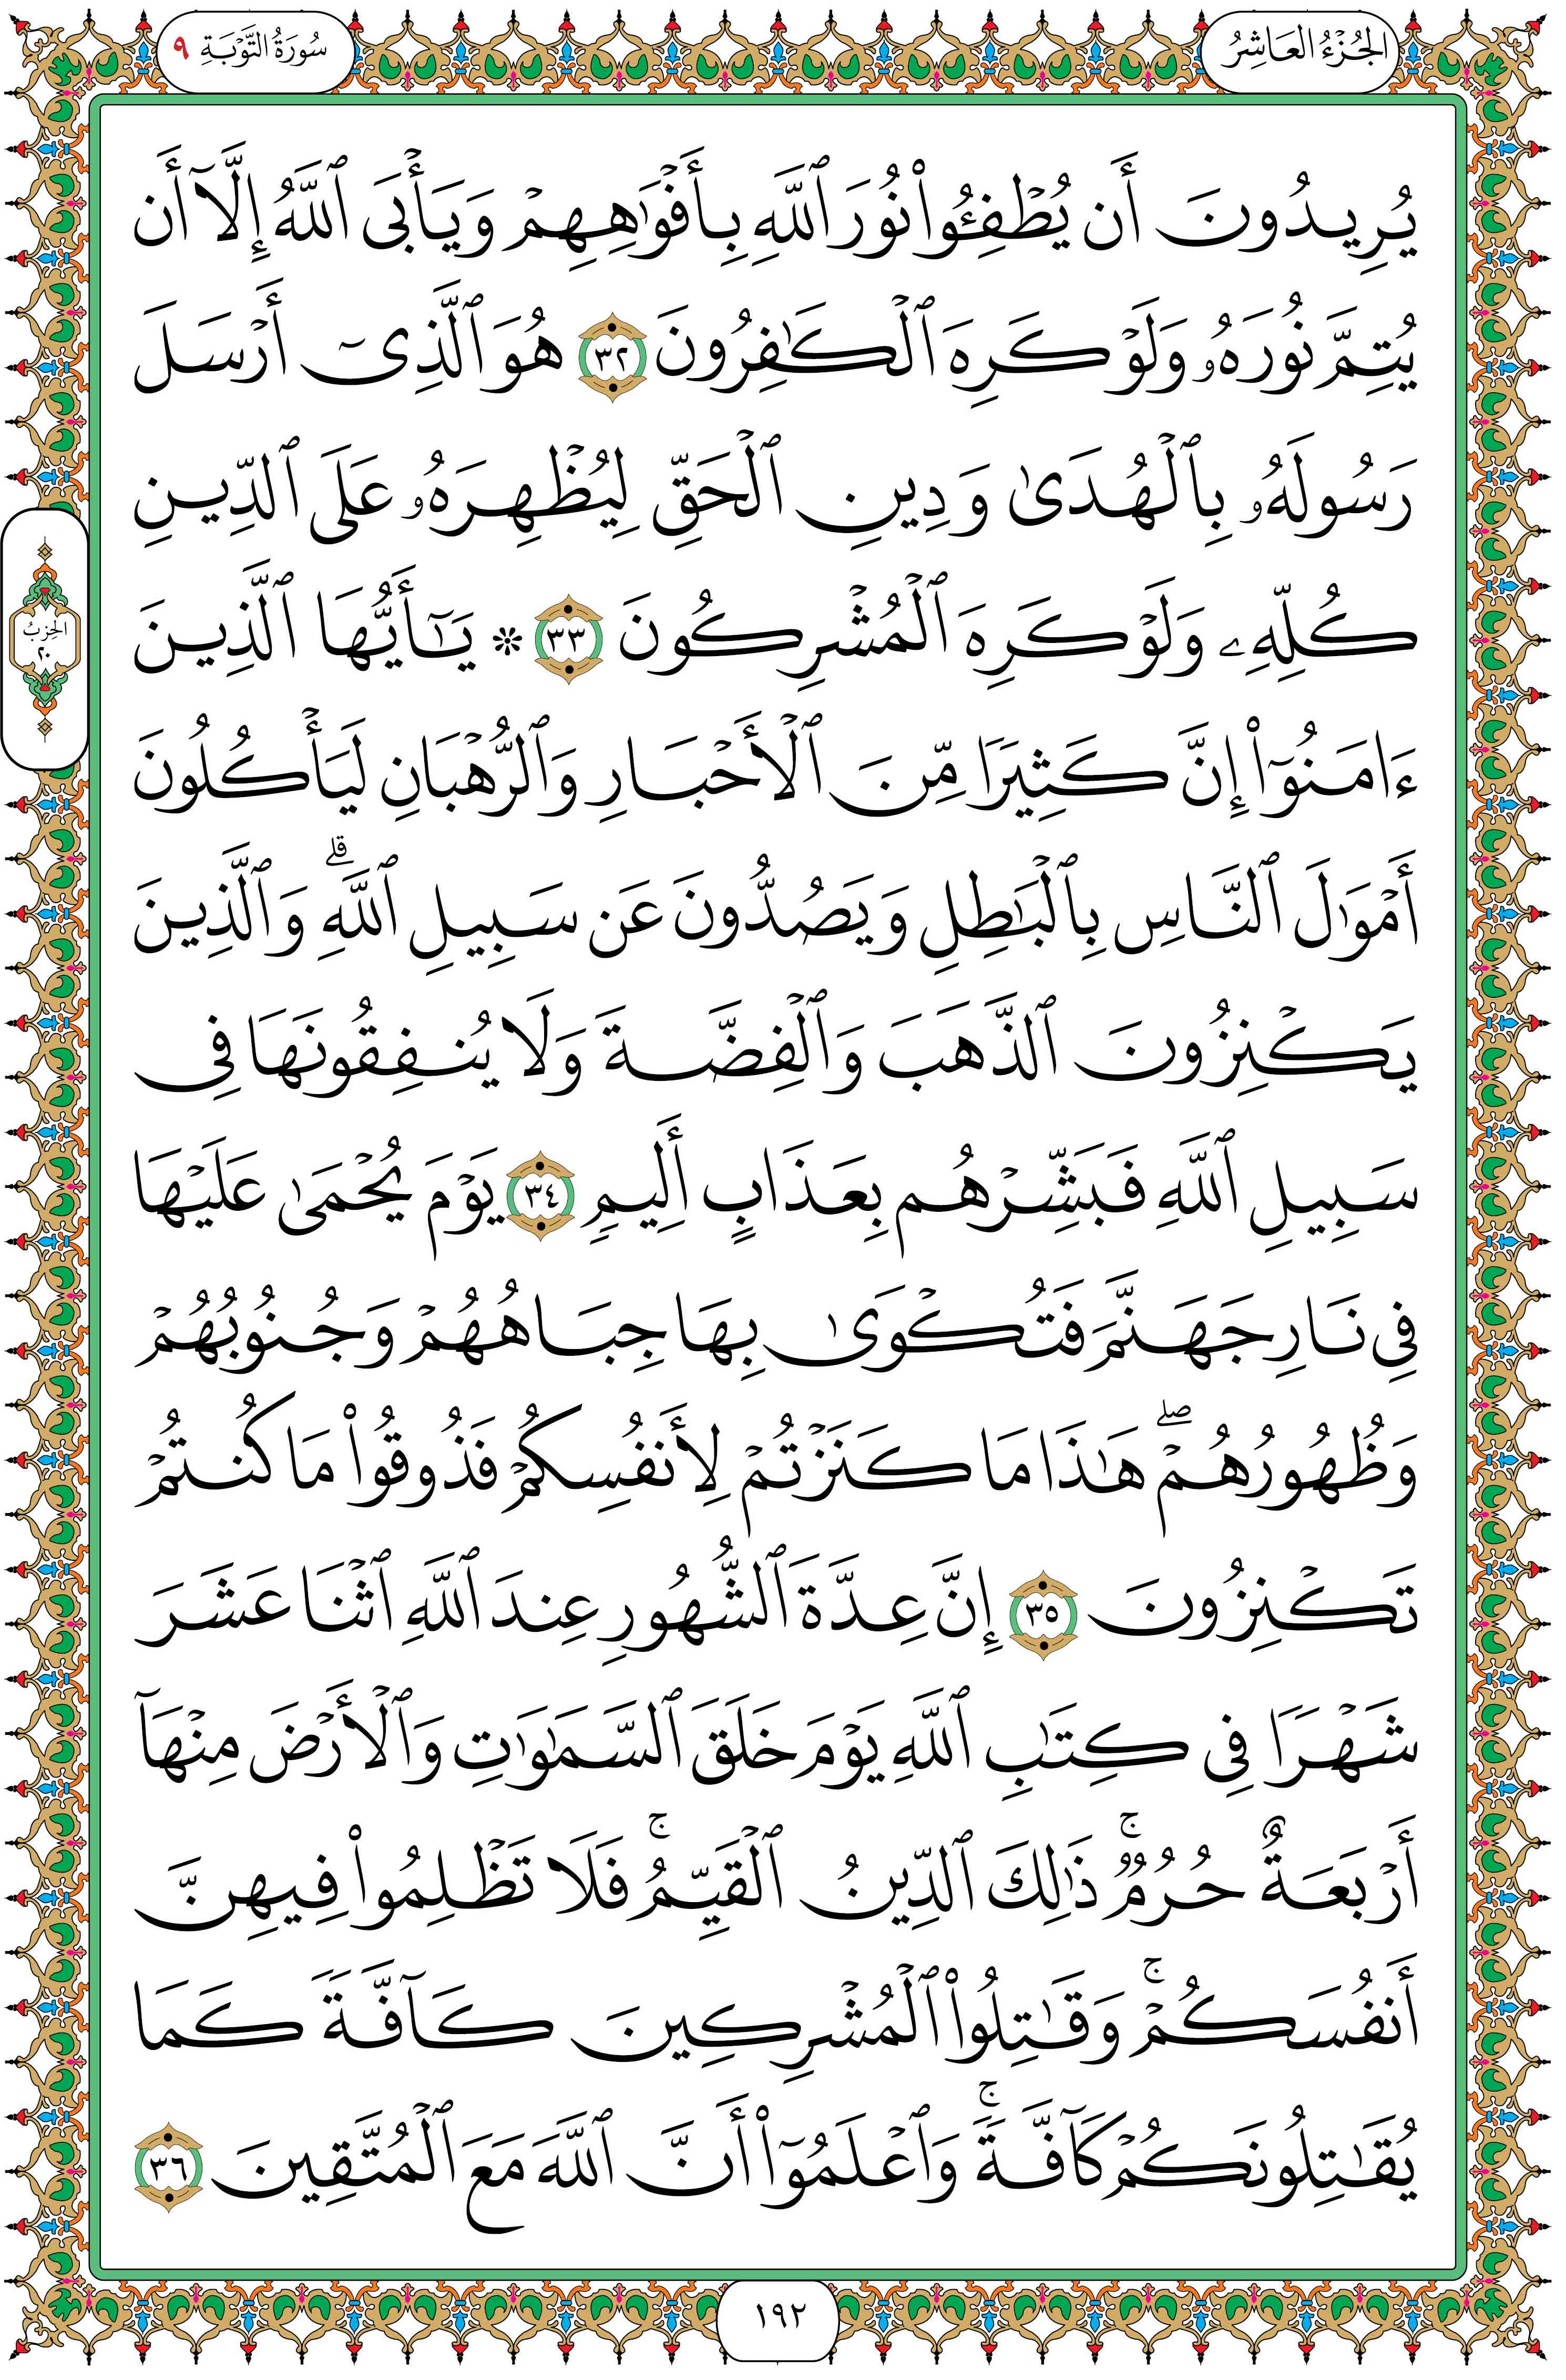 الجُزْءُ العَاشِرُ
سُورَةُ التَّوْبَةِ ٩
يُرِيدُونَ أَن يُطْفِـُٔوا۟ نُورَ ٱللَّهِ بِأَفْوَٰهِهِمْ وَيَأْبَى ٱللَّهُ إِلَّآ أَن
يُتِمَّ نُورَهُۥ وَلَوْ كَرِهَ ٱلْكَٰفِرُونَ ٣٢ هُوَ ٱلَّذِىٓ أَرْسَلَ
رَسُولَهُۥ بِٱلْهُدَىٰ وَدِينِ ٱلْحَقِّ لِيُظْهِرَهُۥ عَلَى ٱلدِّينِ
كُلِّهِۦ وَلَوْ كَرِهَ ٱلْمُشْرِكُونَ ٣٣ * يَٰٓأَيُّهَا ٱلَّذِينَ
ءَامَنُوٓا۟ إِنَّ كَثِيرًا مِّنَ ٱلْأَحْبَارِ وَٱلرُّهْبَانِ لَيَأْكُلُونَ
أَمْوَٰلَ ٱلنَّاسِ بِٱلْبَٰطِلِ وَيَصُدُّونَ عَن سَبِيلِ ٱللَّهِ ۗ وَٱلَّذِينَ
يَكْنِزُونَ ٱلذَّهَبَ وَٱلْفِضَّةَ وَلَا يُنفِقُونَهَا فِى
سَبِيلِ ٱللَّهِ فَبَشِّرْهُم بِعَذَابٍ أَلِيمٍ ٣٤ يَوْمَ يُحْمَىٰ عَلَيْهَا
فِى نَارِ جَهَنَّمَ فَتُكْوَىٰ بِهَا جِبَاهُهُمْ وَجُنُوبُهُمْ
وَظُهُورُهُمْ ۖ هَٰذَا مَا كَنَزْتُمْ لِأَنفُسِكُمْ فَذُوقُوا۟ مَا كُنتُمْ
تَكْنِزُونَ ٣٥ إِنَّ عِدَّةَ ٱلشُّهُورِ عِندَ ٱللَّهِ ٱثْنَا عَشَرَ
شَهْرًا فِى كِتَٰبِ ٱللَّهِ يَوْمَ خَلَقَ ٱلسَّمَٰوَٰتِ وَٱلْأَرْضَ مِنْهَآ
أَرْبَعَةٌ حُرُمٌ ۚ ذَٰلِكَ ٱلدِّينُ ٱلْقَيِّمُ ۚ فَلَا تَظْلِمُوا۟ فِيهِنَّ
أَنفُسَكُمْ ۚ وَقَٰتِلُوا۟ ٱلْمُشْرِكِينَ كَآفَّةً كَمَا
يُقَٰتِلُونَكُمْ كَآفَّةً ۚ وَٱعْلَمُوٓا۟ أَنَّ ٱللَّهَ مَعَ ٱلْمُتَّقِينَ ٣٦
الحِزبُ
٢٠
١٩٢